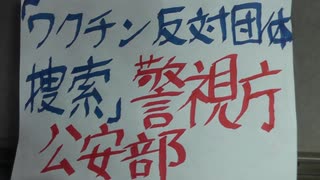 「ワクチン反対団体
捜索」警視庁
公安部